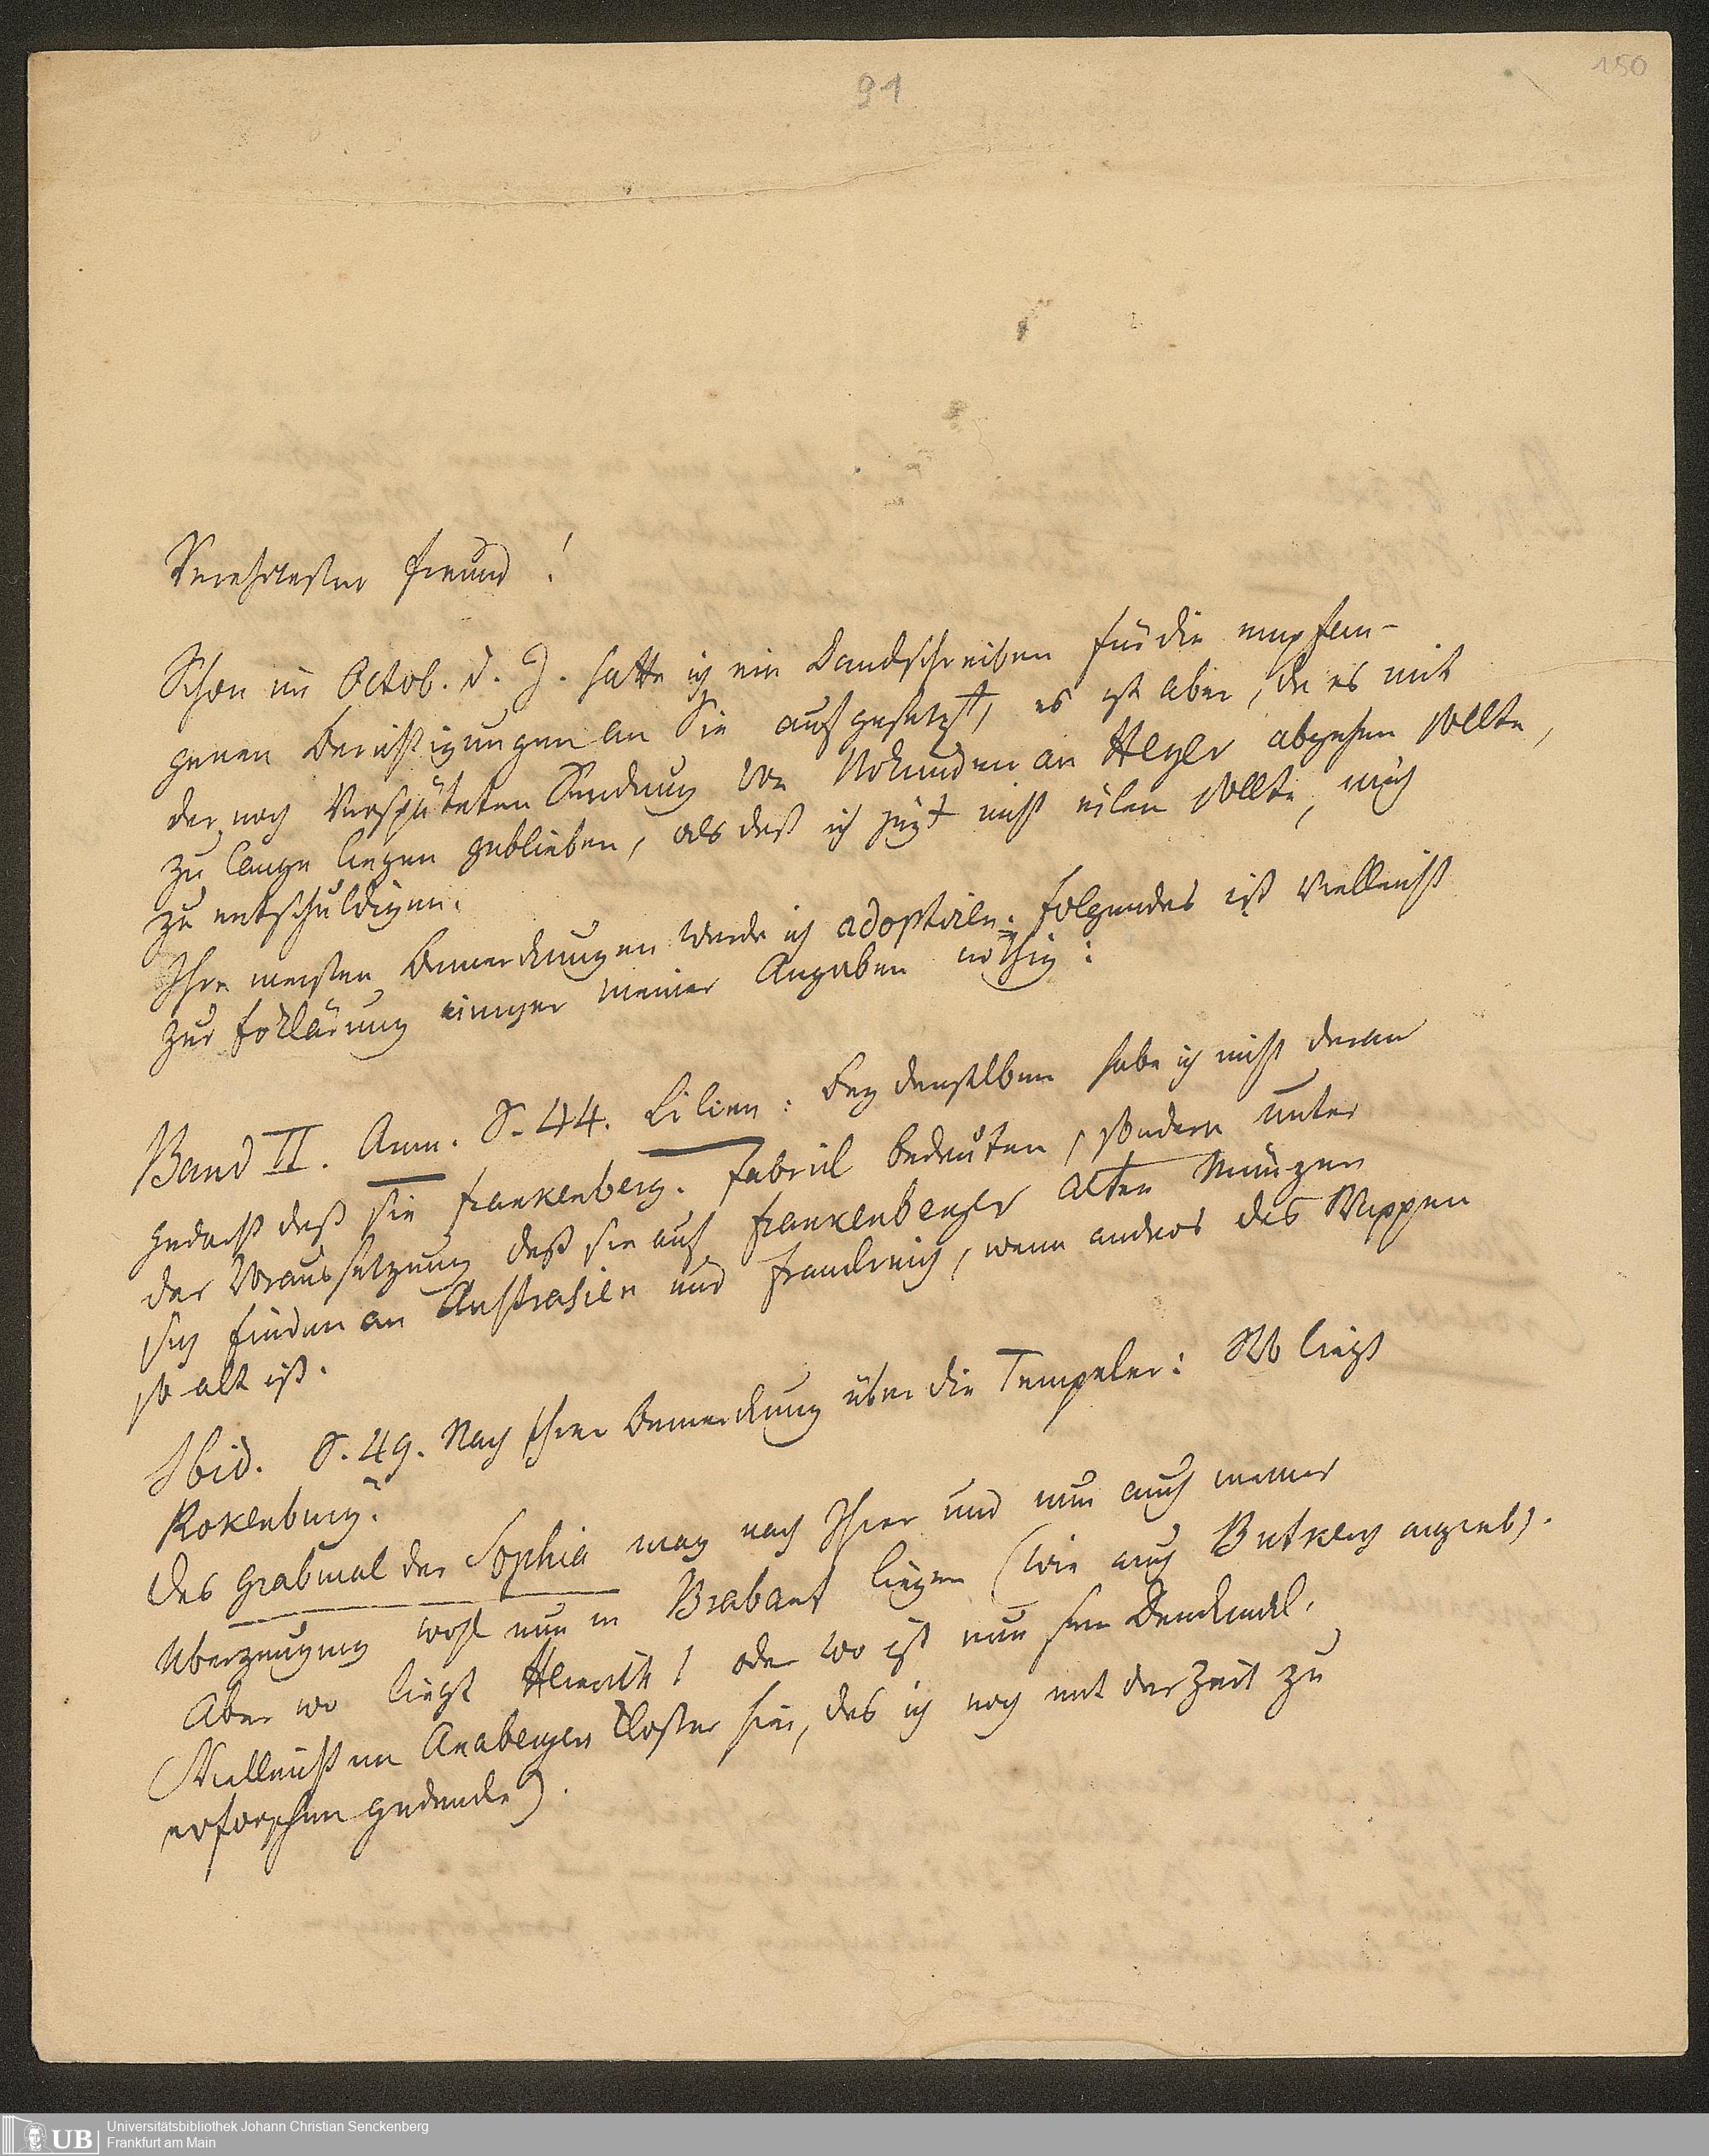 91
150
Verehrtester Freund!
Schon im Octob. d. J. hatte ich ein Dankschreiben für die empfan-
genen Berichtigungen an Sie aufgesetzt, es ist aber, da es mit
der noch verspäteten Sendung von Urkunden an Heyer abgehen sollte,
zu lange liegen geblieben, als daß ich jezt nicht eilen sollte, mich
zu entschuldigen.
Ihre meisten Bemerkungen werde ich adoptiren. Folgendes ist vielleicht
zur Erklärung einiger meiner Angaben nöthig:
Band II. Anm. S. 44. Lilien: Bey denselben habe ich nicht daran
gedacht daß sie Frankenberg. Fabrik bedeuten, sondern unter
der Voraussetzung daß sie auf Frankenberger alten Münzen
sich finden an Austrasien und Frankreich, wenn anders das Wappen
so alt ist.
Ibid. S. 49. Nach Ihrer Bemerkung über die Tempeler: Wo liegt
Rokenburg?
Das Grabmal der Sophia mag nach Ihrer und nun auch meiner
Überzeugung wohl nun in Brabant liegen (wie auch Butkens angieb).
Aber wo liegt Henrich I oder wo ist nun sein Denkmal.
(Vielleicht im Anaberger Closter hier, das ich noch mit der Zeit zu
erforschen gedenke).
UB
Universitätsbibliothek Johann Christian Senckenberg
Frankfurt am Main